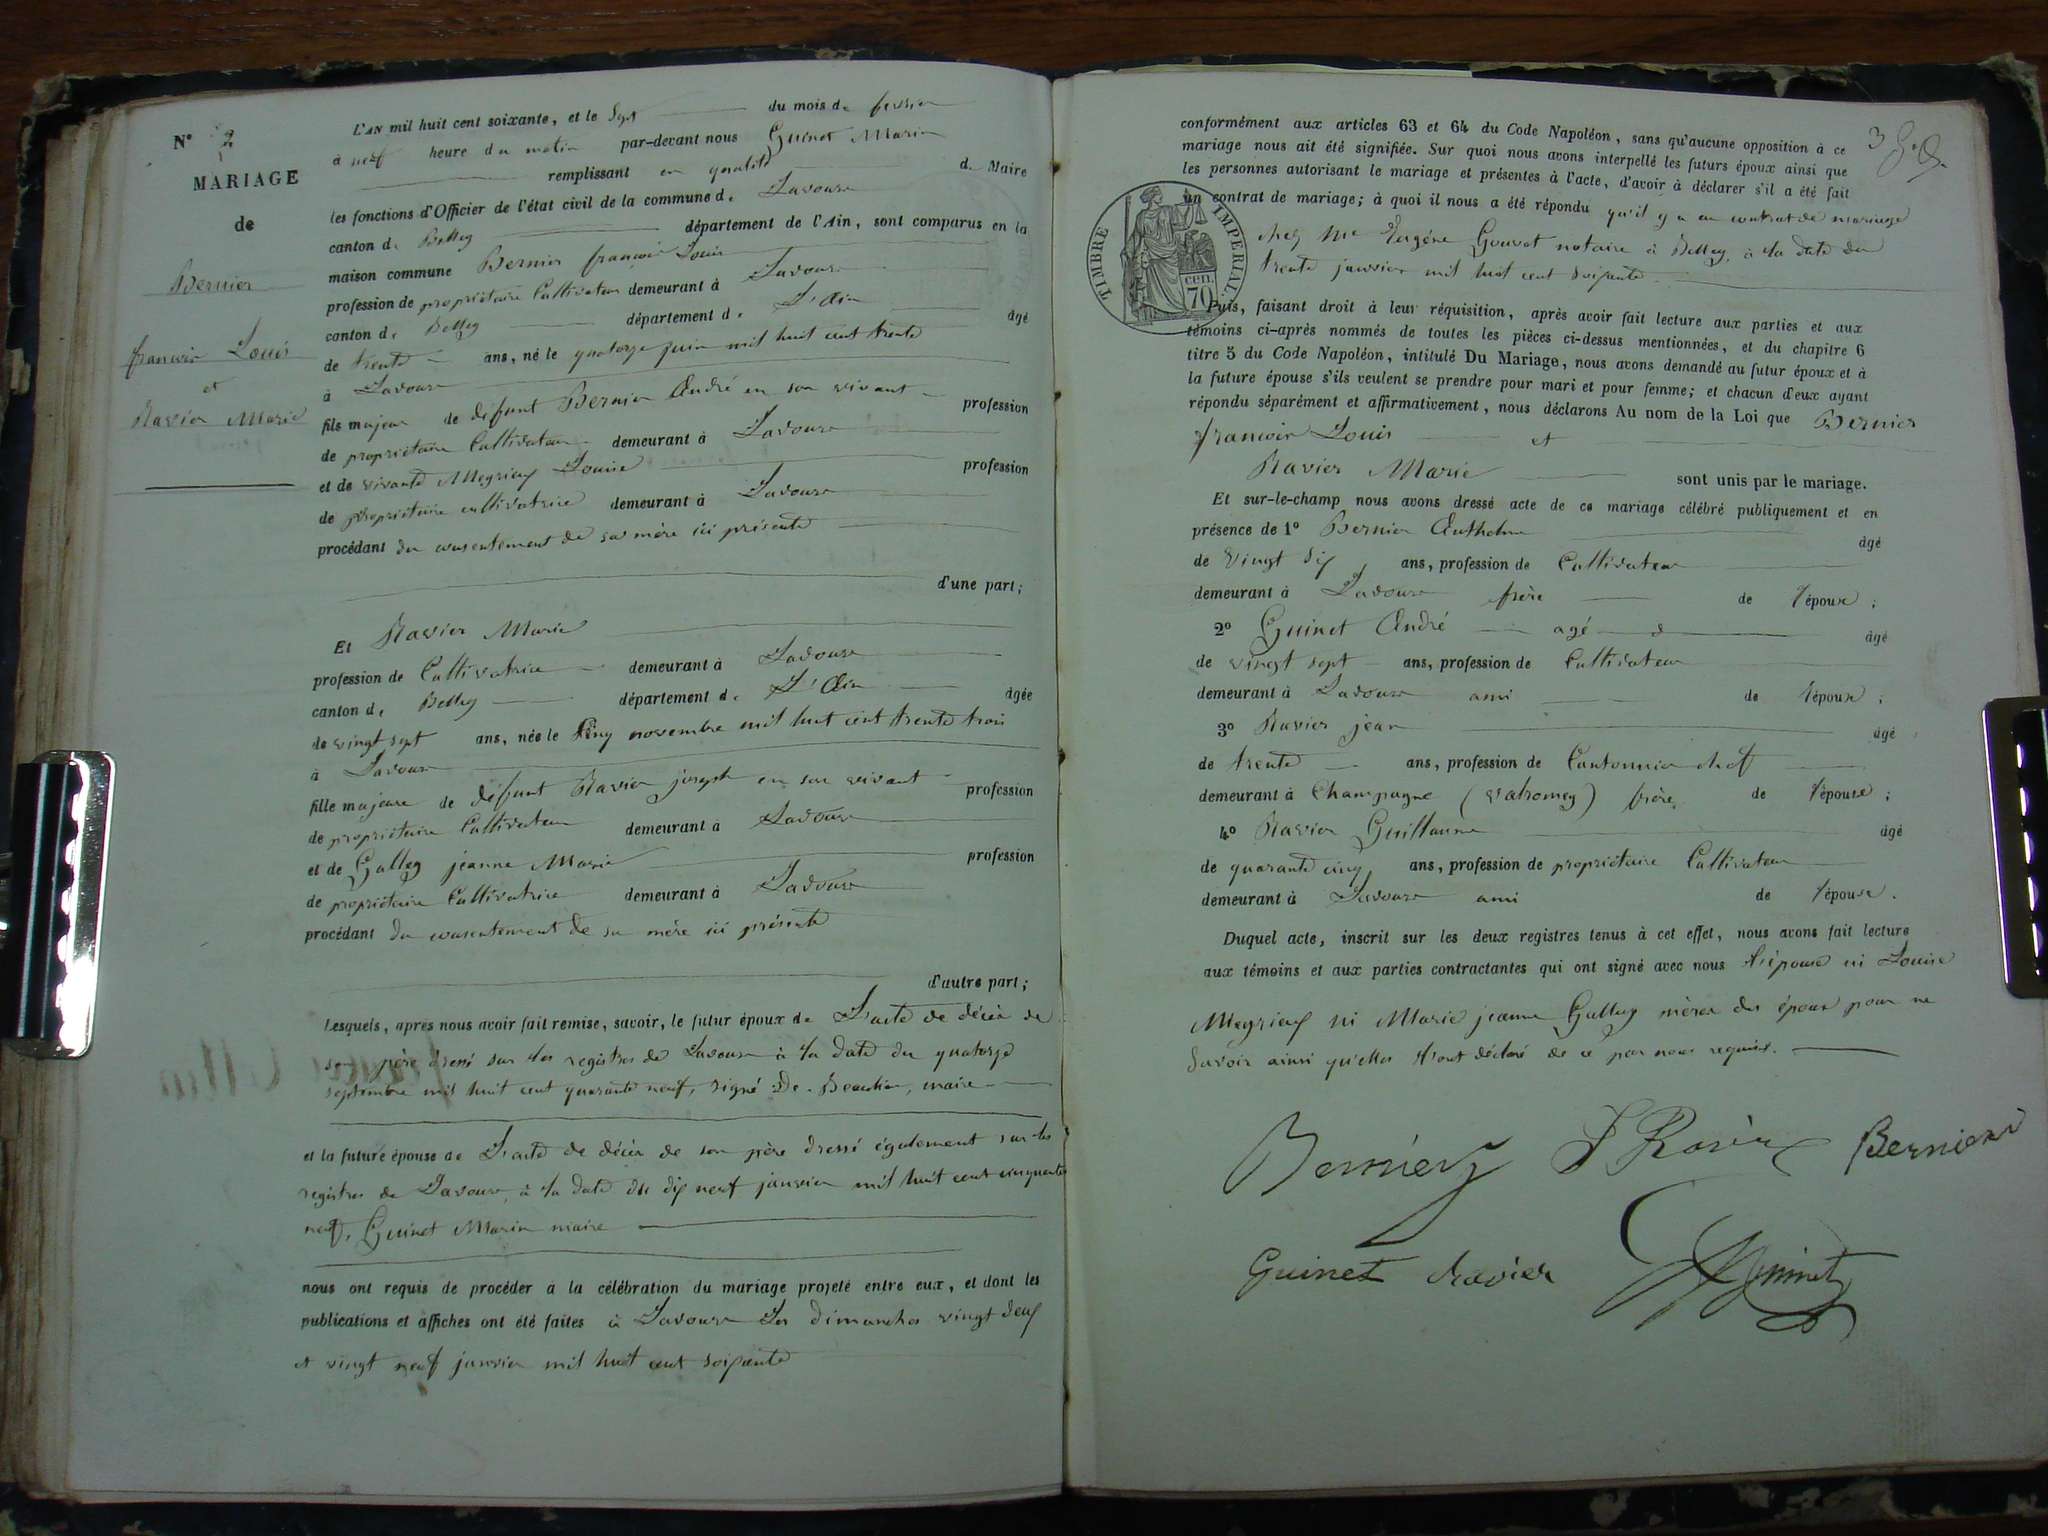 N° 2
MARIAGE
de
Bernier
françois Louis
et
Ravier Marie
L'AN mil huit cent soixante, et le Sept du mois de fevrier
à neuf heure du matin par-devant nous Guinet Marin
remplissant en qualité de Maire
les fonctions d'Officier de l'état civil de la commune de Lavours
canton de Belley département de l'Ain, sont comparus en la
maison commune Bernier françois Louis
profession de propriétaire Cultivateur demeurant à Lavours
canton de Belley département de L'Ain âgé
de trente ans, né le quatorze juin mil huit cent trente
à Lavours
fils majeur de défunt Bernier André en son vivant profession
de propriétaire Cultivateur demeurant à Lavours
et de vivante Meyrieux Louise profession
de propriétaire cultivatrice demeurant à Lavours
procédant du consentement de sa mère ici présente
d'une part;
Et Ravier Marie
profession de Cultivatrice demeurant à Lavours
canton de Belley département de L'Ain âgée
de vingt sept ans, née le cinq novembre mil huit cent trente trois
à Lavours
fille majeure de défunt Ravier joseph en son vivant profession
de propriétaire Cultivateur demeurant à Lavours
et de Galley jeanne Marie profession
de propriétaire Cultivatrice demeurant à Lavours
procédant du consentement de sa mère ici présente
d'autre part;
Lesquels, après nous avoir fait remise, savoir, le futur époux de L'acte de décès de
son père dressé sur les registres de Lavours à la date du quatorze
septembre mil huit cent quarante neuf, signé De maire
et la future épouse de L'acte de décès de son père dressé également sur les
registres de Lavours, à la date du dix neuf janvier mil huit cent cinquante
neuf, Guinet Marin maire
nous ont requis de procéder à la célébration du mariage projeté entre eux, et dont les
publications et affiches ont été faites à Lavours Les dimanches vingt deux
et vingt neuf janvier mil huit cent soixante
3
conformément aux articles 63 et 64 du Code Napoléon, sans qu'aucune opposition à ce
mariage nous ait été signifiée. Sur quoi nous avons interpellé les futurs époux ainsi que
les personnes autorisant le mariage et présentes à l'acte, d'avoir à déclarer s'il a été fait
un contrat de mariage; à quoi il nous a été répondu qu'il y a un contrat de mariage
chez Me Eugéne Gouvot notaire à Belley, à la date du
trente janvier mil huit cent soixante
TIMBRE IMPERIAL.
70 cen.
Puis, faisant droit à leur réquisition, après avoir fait lecture aux parties et aux
témoins ci-après nommés de toutes les pièces ci-dessus mentionnées, et du chapitre 6
titre 5 du Code Napoléon, intitulé Du Mariage, nous avons demandé au futur époux et à
la future épouse s'ils veulent se prendre pour mari et pour femme; et chacun d'eux ayant
répondu séparément et affirmativement, nous déclarons Au nom de la Loi que Bernier
françois Louis et
Ravier Marie sont unis par le mariage.
Et sur-le-champ nous avons dressé acte de ce mariage célébré publiquement et en
présence de 1° Bernier Anthelme âgé
de vingt six ans, profession de Cultivateur
demeurant à Lavours frère de l'époux;
2° Guinet André agé d âgé
de vingt sept ans, profession de Cultivateur
demeurant à Lavours ami de l'époux;
3° Ravier jean âgé
de trente ans, profession de Cantonnier chef
demeurant à Champagne (valromey) frère de l'épouse;
4° Ravier Guillaume âgé
de quarante cinq ans, profession de propriétaire Cultivateur
demeurant à Lavours ami de l'épouse.
Duquel acte, inscrit sur les deux registres tenus à cet effet, nous avons fait lecture
aux témoins et aux parties contractantes qui ont signé avec nous ni Louise
Meyrieux ni Marie jeanne Galley mères des époux pour ne
savoir ainsi qu'elles l'ont déclaré de ce par nous requis.
Bernier J Ravier Bernier
Guinet Ravier Guinet